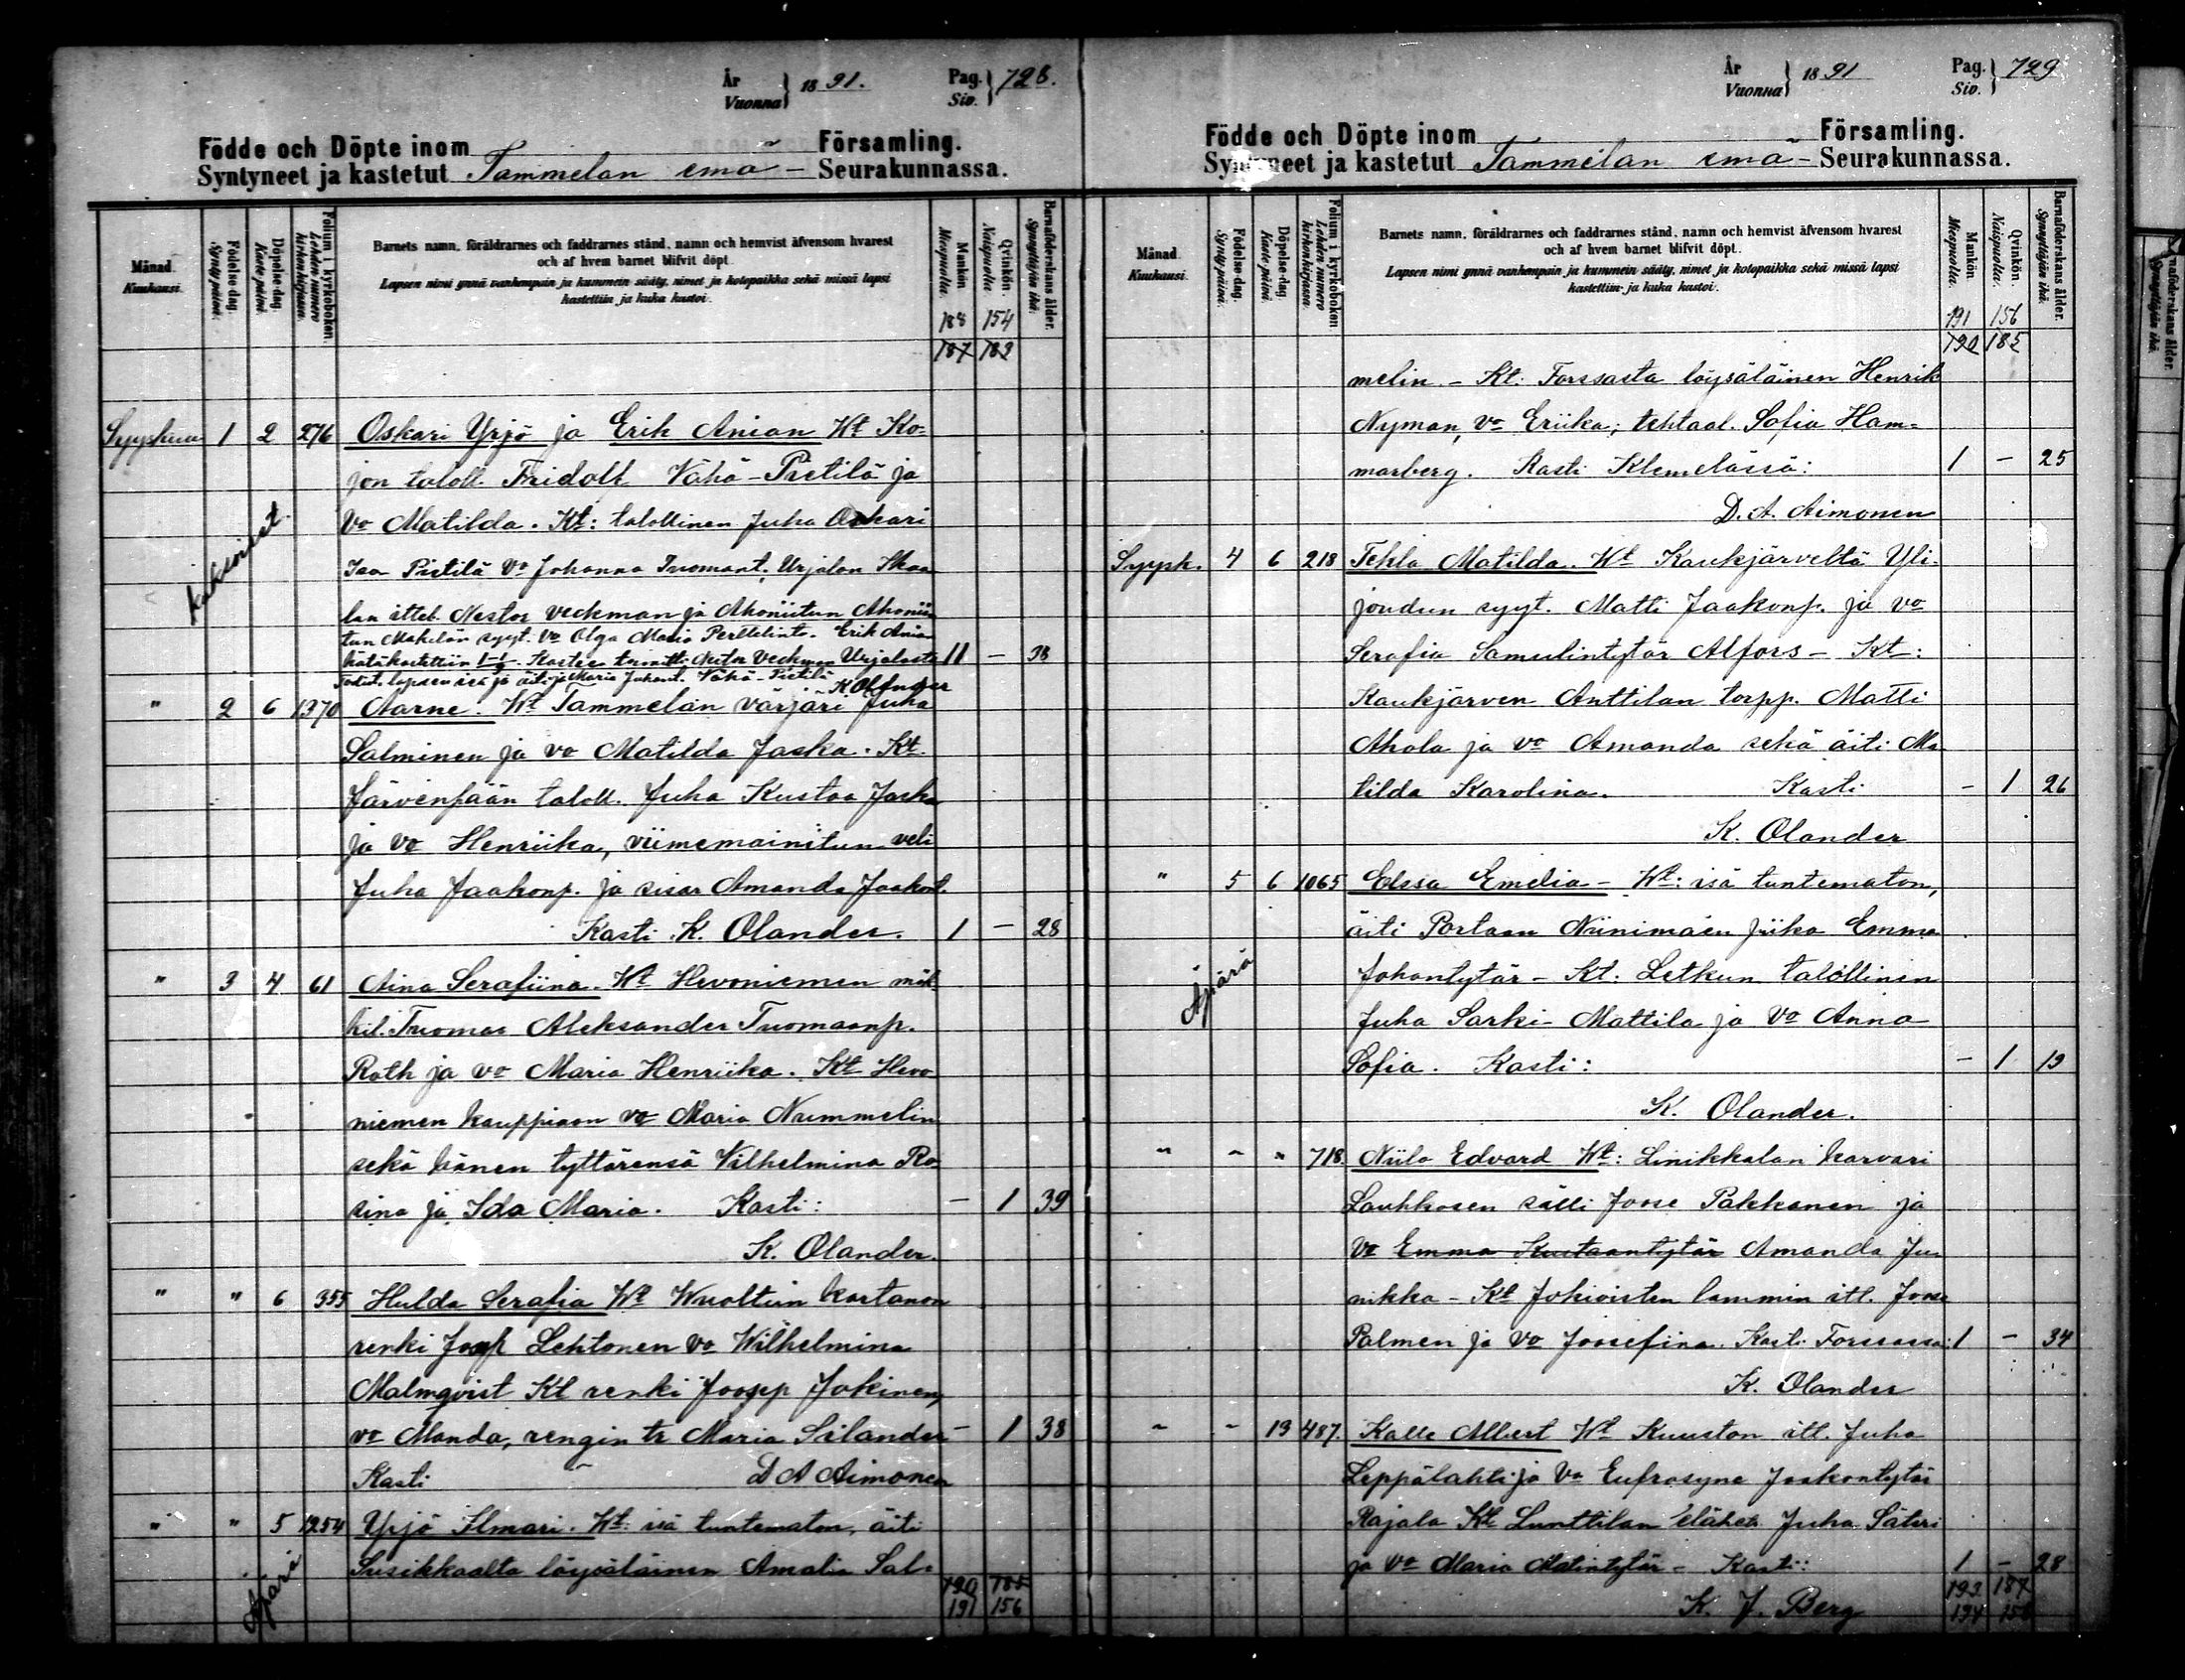 År
Vuonna } 1891. Pag.
Siv. } 728.
Födde och Döpte inom Församling.
Syntyneet ja kastetut Tammelan emä- Seurakunnassa.
Månad.
Kuukausi.
Födelse-dag.
Syntypäivä.
Döpelse-dag.
Kaste päivä.
Folium i kyrkoboken.
Lehden numero kirkonkirjassa.
Barnets namn, föräldrarnes och faddrarnes stånd, namn och hemvist äfvensom hvarest
och af hvem barnet blifvit döpt.
Lapsen nimi ynnä vanhempain ja kummein sääty, nimet ja kotopaikka sekä missä lapsi
kastettiin ja kuka kastoi.
Mankön.
Miespuolia.
Qvinkön.
Naispuolia.
Barnaföderskans ålder.
Synnyttäjän ikä.
188 154
187 183
Syyskuu 1 2 276 Oskari Yrjö ja Erik Anian Wt Ko-
jon taloll. Fridolf Vähä-Pietilä ja
vo Matilda. Kt: talollinen Juha Oskari
Iso Pietilä vo Johanna Tuomant. Urjalan
kaksoiset.
lan itteb. Nestor Veckman ja Ahoniitun
tun Mäkelän syyt. vo Olga Maria Perttelint. Erik Anian
hätäkastettiin Kasteen toimitti Nestor Veckman Urjalasta 11 - 38
Todist. lapsen isä ja äiti ja Maria Juhant. Vähä-Pietilä
K Olander
" 2 6 1370 Aarne. Wt Tammelan värjäri Juha
Salminen ja vo Matilda Jaska. Kt.
Järvenpään taloll. Juha Kustaa Jaska
ja vo Henriika, viimemainitun veli
Juha Jaakonp. ja sisar Amanda Jaakont.
Kasti K. Olander. 1 - 28
" 3 4 61 Aina Serafiina. Wt Hevoniemen mäk.
kil. Tuomas Aleksander Tuomaanp.
Roth ja vo Maria Henriika. Kt Hevo
niemen kauppiaan vo Maria Nummelin
sekä hänen tyttärensä Vilhelmina Ro
sina ja Ida Maria. Kasti: - 1 39
K. Olander.
" " 6 355 Hulda Serafia Wt Wuoltiin kartanon
renki Josep Lehtonen vo Wilhelmina
Malmqvist Kt renki Joosep Jokinen,
vo Manda, rengin tr Maria Silander - 1 38
Kasti D A Aimonen
" " 5 1254 Yrjö Ilmari. Wt: isä tuntematon, äiti
Äpärä
Susikkaalta löysäläinen Amalia Sal-
190 185
191 156
År
Vuonna } 1891 Pag.
Siv. } 729
Födde och Döpte inom Församling.
Syntyneet ja kastetut Tammelan emä- Seurakunnassa.
Månad.
Kuukausi.
Födelse-dag.
Syntypäivä.
Döpelse-dag.
Kaste päivä.
Folium i kyrkoboken.
Lehden numero kirkonkirjassa.
Barnets namn, föräldrarnes och faddrarnes stånd, namn och hemvist äfvensom hvarest
och af hvem barnet blifvit döpt.
Lapsen nimi ynnä vanhempain ja kummein sääty, nimet ja kotopaikka sekä missä lapsi
kastettiin ja kuka kastoi.
Mankön.
Miespuolia.
Qvinkön.
Naispuolia.
Barnaföderskans ålder.
Synnyttäjän ikä.
191 156
190 185
melin - Kt: Forssasta löysäläinen Henrik
Nyman, vo Eriika; tehtaal. Sofia Ham-
marberg. Kasti Klemelässä: 1 - 25
D. A. Aimonen
Syysk. 4 6 218 Tekla Matilda. Wt Kaukjärveltä Yli-
joudun syyt. Matti Jaakonp. ja vo
Serafia Samulintytär Alfors - Kt:
Kaukjärven Anttilan torpp. Matti
Ahola ja vo Amanda sekä äiti Ma
tilda Karolina. Kasti - 1 26
K. Olander
" 5 6 1065 Elssa Emelia - Wt: isä tuntematon,
äiti Portaan Niinimäen piika Emma
Äpärä
Johantytär - Kt: Letkun talollinen
Juha Sarki-Mattila ja vo Anna
Sofia. Kasti: - 1 19
K. Olander.
" " " 718. Niilo Edvard Wt: Linikkalan karvari
Lauhkosen sälli Joose Pakkanen ja
vo Emma Kustaantytär Amanda Ju
nikka - Kt Jokioisten lammin itl. Joose
Palmen ja vo Joosefina. Kasti Forssassa: 1 - 34
K. Olander
" " 13 487. Kalle Albert Wt Kuuston itl. Juha
Leppälahti ja vo Eufrosyne Jaakontytär
Rajala Kt Lunttilan elähet. Juha Säteri
ja vo Maria Matintytär - Kasti: 1 - 28
K. J. Berg
193 187
194 158